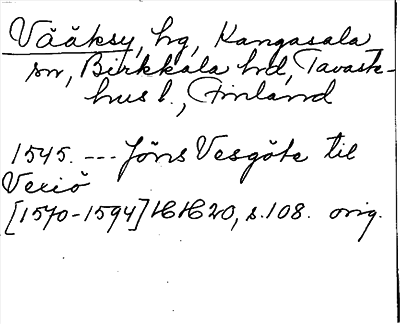 Vääksy, hg, Kangasala
sn, Birkkala hd, Tavaste-
hus l., Finland
1545. --- Jöns Vesgöte til
Vexiö
[1570-1594] HH20, s. 108. orig.